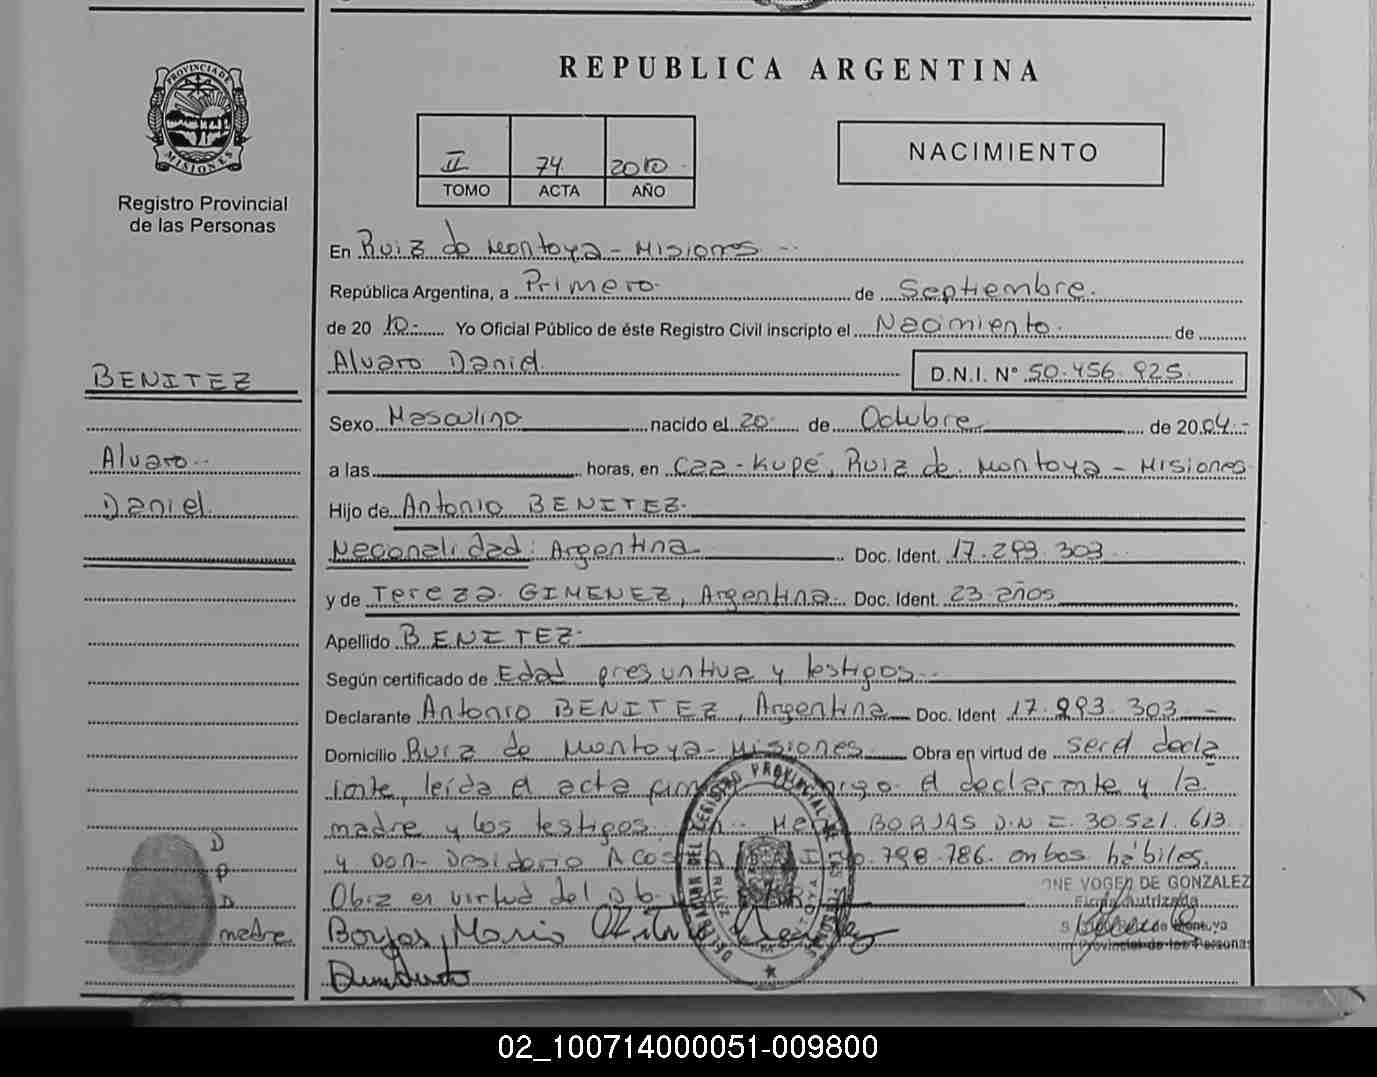 REPUBLICA ARGENTINA
PROVINCIA DE
MISIONES
Registro Provincial
de las Personas
II 74 2010
TOMO ACTA AÑO
NACIMIENTO
En Ruiz de Montoya - Misiones
República Argentina, a Primero de Septiembre.
de 2010 Yo Oficial Público de éste Registro Civil inscripto el Nacimiento de
Alvaro Daniel D.N.I. N° 50.456.925
BENITEZ
Alvaro
Daniel
Sexo Masculino nacido el 20 de Octubre de 2004
a las horas, en Caa-Kupé, Ruiz de Montoya - Misiones
Hijo de Antonio BENITEZ
Nacionalidad: Argentina Doc. Ident. 17.293.303
y de Tereza GIMENEZ, Argentina Doc. Ident. 23 años
Apellido BENITEZ
Según certificado de Edad presuntiva y testigos
Declarante Antonio BENITEZ, Argentina Doc. Ident 17.293.303
Domicilio Ruiz de Montoya - Misiones Obra en virtud de ser el decla
rante, leída el acta el declarante y la
madre y los testigos BORJAS D.N.I. 30.521.613
y Don Desiderio 798.786. ambos hábiles.
Obra en virtud del
ONE VOGEL DE GONZALEZ
Firma Autorizada
Montoya
Provincial de las Personas
D
P
D
madre
Borjas, Mario
02_100714000051-009800